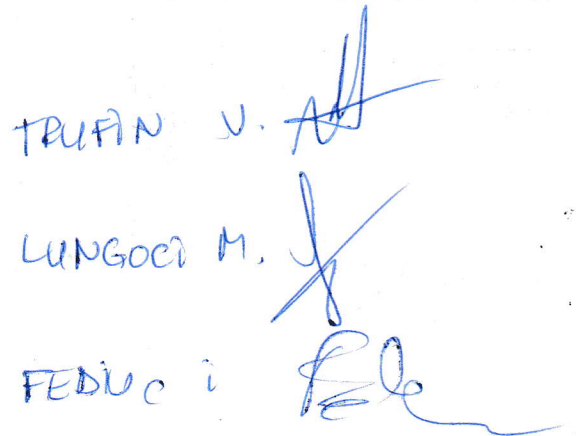 TRUFIN V.
LUNGOCI M.
FEDIUC i